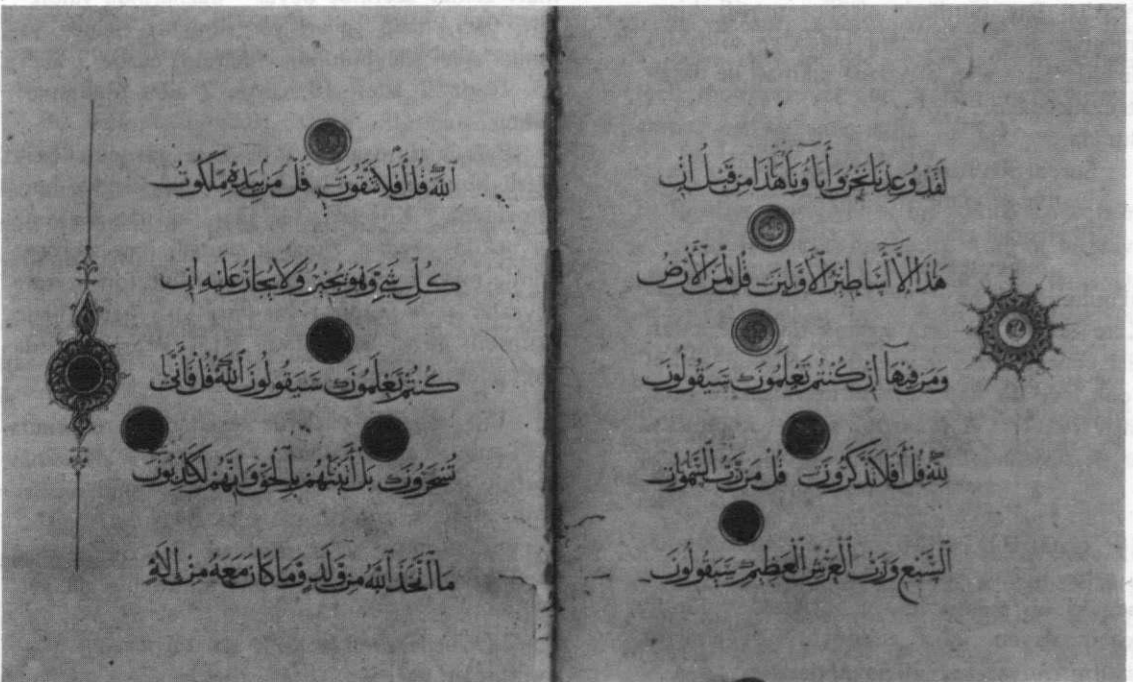 لَقَدْ وُعِدْنَا نَحْنُ وَآبَاؤُنَا هَذَا مِنْ قَبْلُ إِنْ
هَذَا إِلَّا أَسَاطِيرُ الْأَوَّلِينَ قُلْ لِمَنِ الْأَرْضُ
وَمَنْ فِيهَا إِنْ كُنْتُمْ تَعْلَمُونَ سَيَقُولُونَ
لِلَّهِ قُلْ أَفَلَا تَذَكَّرُونَ قُلْ مَنْ رَبُّ السَّمَوَاتِ
السَّبْعِ وَرَبُّ الْعَرْشِ الْعَظِيمِ سَيَقُولُونَ
اللَّهُ قُلْ أَفَلَا تَتَّقُونَ قُلْ مَنْ بِيَدِهِ مَلَكُوتُ
كُلِّ شَيْءٍ وَهُوَ يُجِيرُ وَلَا يُجَارُ عَلَيْهِ إِنْ
كُنْتُمْ تَعْلَمُونَ سَيَقُولُونَ اللَّهُ قُلْ فَأَنَّى
تُسْحَرُونَ بَلْ أَتَيْنَاهُمْ بِالْحَقِّ وَإِنَّهُمْ لَكَاذِبُونَ
مَا اتَّخَذَ اللَّهُ مِنْ وَلَدٍ وَمَا كَانَ مَعَهُ مِنْ إِلَهٍ